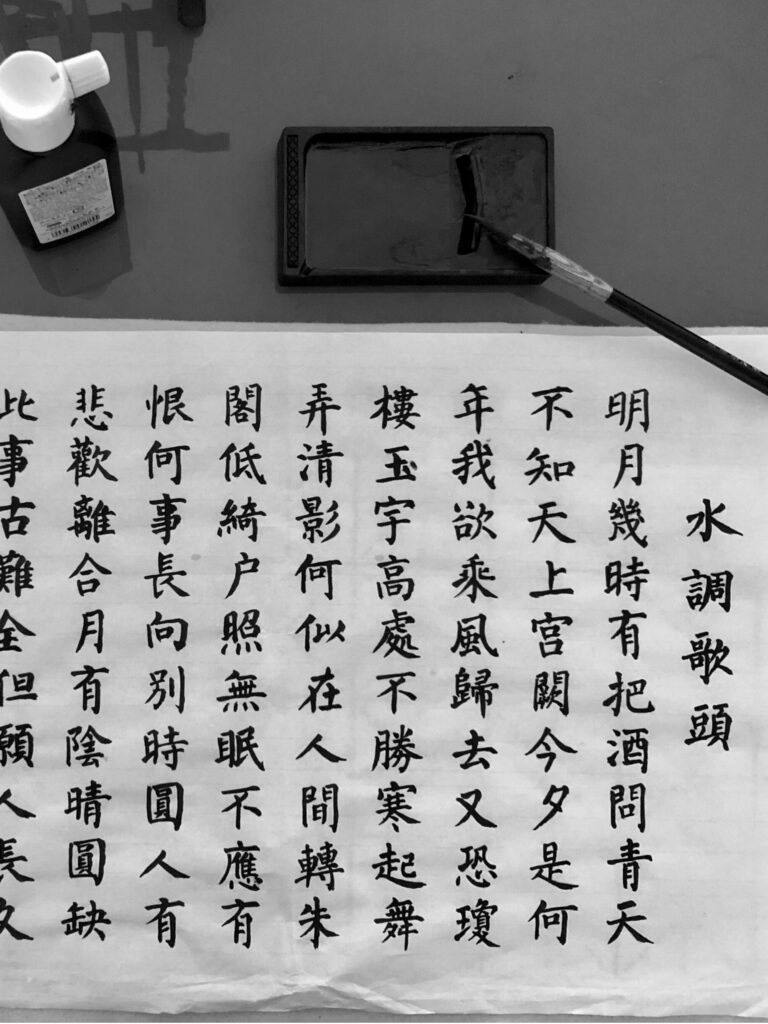 水調歌頭
明月幾時有把酒問青天
不知天上宮闕今夕是何
年我欲乘風歸去又恐瓊
樓玉宇高處不勝寒起舞
弄清影何似在人間轉朱
閣低綺户照無眠不應有
恨何事長向別時圓人有
悲歡離合月有陰晴圓缺
此事古難全但願人長久